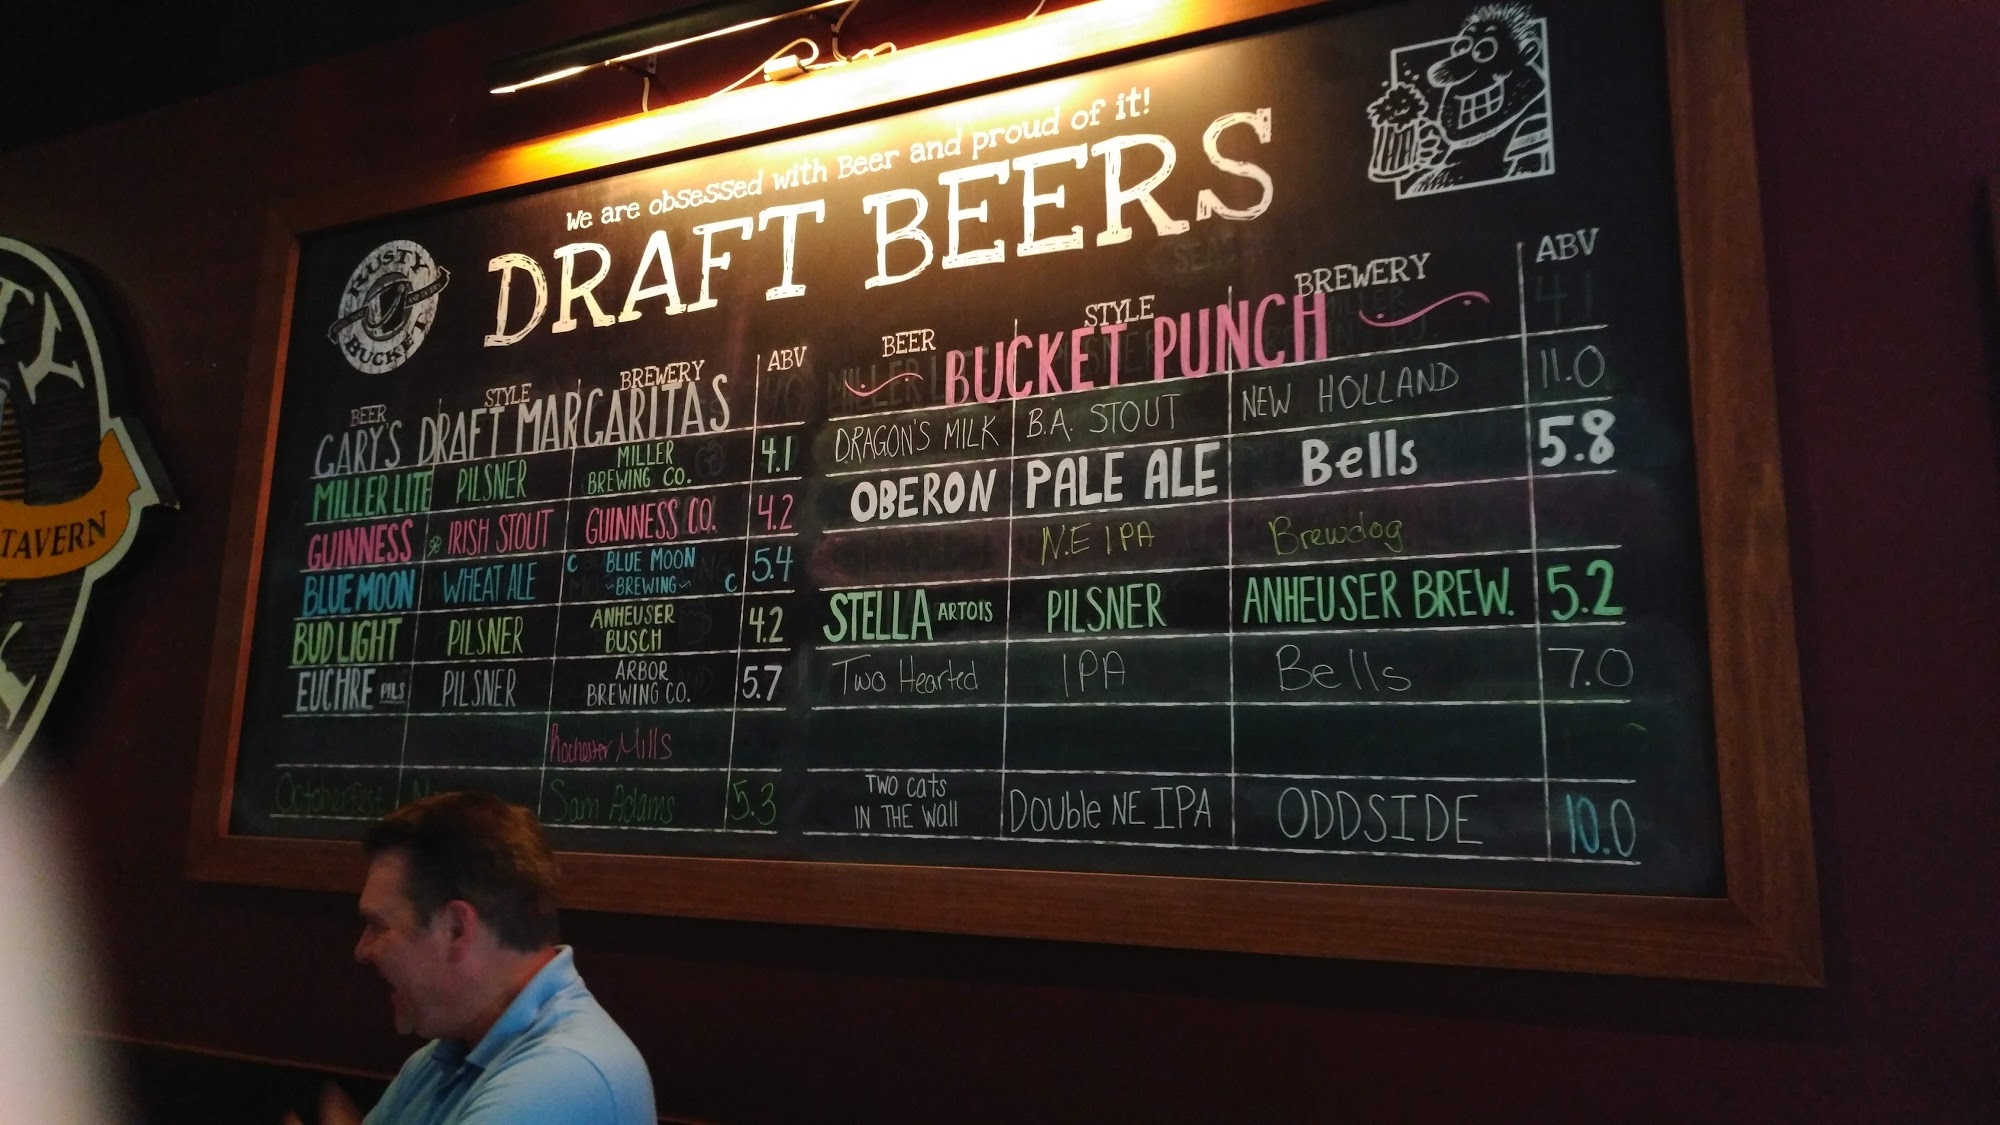 We are obsessed with Beer and proud of it!
DRAFT BEERS
RUSTY
BUCKET
BEER STYLE BREWERY ABV
GARY'S DRAFT MARGARITAS
MILLER LITE PILSNER MILLER BREWING CO. 4.1
GUINNESS IRISH STOUT GUINNESS CO. 4.2
BLUE MOON WHEAT ALE BLUE MOON ~BREWING~ 5.4
BUD LIGHT PILSNER ANHEUSER BUSCH 4.2
EUCHRE PILS PILSNER ARBOR BREWING CO. 5.7
Rochester Mills
Octoberfest Sam Adams 5.3
BEER STYLE BREWERY ABV
BUCKET PUNCH
DRAGON'S MILK B.A. STOUT NEW HOLLAND 11.0
OBERON PALE ALE Bells 5.8
N.E IPA Brewdog
STELLA ARTOIS PILSNER ANHEUSER BREW. 5.2
Two Hearted IPA Bells 7.0
TWO CATS IN THE WALL DOUBLE NE IPA ODDSIDE 10.0
TAVERN